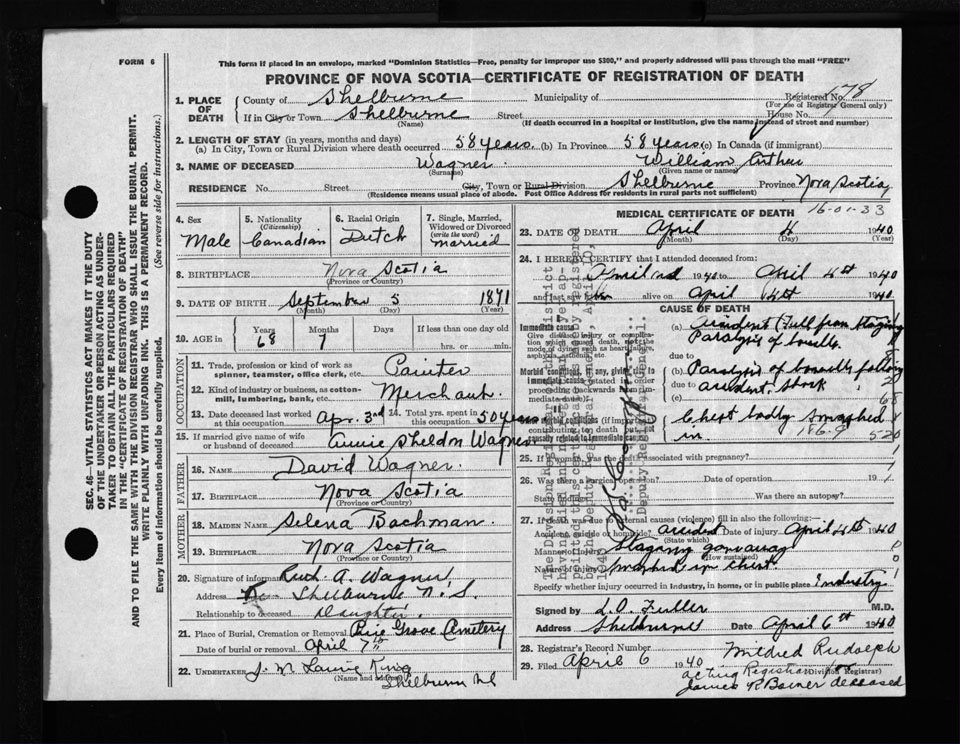 FORM 6
This form if placed in an envelope, marked "Dominion Statistics—Free, penalty for improper use $300," and properly addressed will pass through the mail "FREE"
PROVINCE OF NOVA SCOTIA—CERTIFICATE OF REGISTRATION OF DEATH
SEC. 46—VITAL STATISTICS ACT MAKES IT THE DUTY
OF THE UNDERTAKER OR PERSON ACTING AS UNDER-
TAKER TO OBTAIN ALL THE PARTICULARS REQUIRED
IN THE "CERTIFICATE OF REGISTRATION OF DEATH"
AND TO FILE THE SAME WITH THE DIVISION REGISTRAR WHO SHALL ISSUE THE BURIAL PERMIT.
WRITE PLAINLY WITH UNFADING INK. THIS IS A PERMANENT RECORD.
Every item of information should be carefully supplied. (See reverse side for instructions.)
1. PLACE OF DEATH
County of Shelburne Municipality of Registered No. 178
(For use of Registrar General only)
If in City or Town Shelburne Street House No.
(Name) (If death occurred in a hospital or institution, give the name instead of street and number)
2. LENGTH OF STAY (in years, months and days)
(a) In City, Town or Rural Division where death occurred 58 years. (b) In Province 58 years (c) In Canada (if immigrant)
3. NAME OF DECEASED Wagner William Arthur
(Surname) (Given name or names)
RESIDENCE No. Street City, Town or Rural Division Shelburne Province Nova Scotia
(Residence means usual place of abode. Post Office Address for residents in rural parts not sufficient)
4. Sex Male
5. Nationality (Citizenship) Canadian
6. Racial Origin Dutch
7. Single, Married, Widowed or Divorced (write the word) married
8. BIRTHPLACE Nova Scotia
(Province or Country)
9. DATE OF BIRTH September 5 1871
(Month) (Day) (Year)
10. AGE in Years 68 Months 7 Days If less than one day old hrs. or min.
OCCUPATION
11. Trade, profession or kind of work as spinner, teamster, office clerk, etc. Painter
12. Kind of industry or business, as cotton-mill, lumbering, bank, etc. Merchant
13. Date deceased last worked at this occupation Apr. 3rd 14. Total yrs. spent in this occupation 50 years
15. If married give name of wife or husband of deceased Annie Sheldon Wagner
FATHER
16. NAME David Wagner.
17. BIRTHPLACE Nova Scotia
(Province or Country)
MOTHER
18. MAIDEN NAME Selena Bachman.
19. BIRTHPLACE Nova Scotia
(Province or Country)
20. Signature of informant A. Wagner
Address Shelburne N.S.
Relationship to deceased Daughter.
21. Place of Burial, Cremation or Removal Pine Grove Cemetery
Date of burial or removal April 7th
22. UNDERTAKER King Shelburne N.S.
(Name and Address)
MEDICAL CERTIFICATE OF DEATH 16-01-33
23. DATE OF DEATH April 4 1940
(Month) (Day) (Year)
24. I HEREBY CERTIFY that I attended deceased from:
April 1940 to April 4st 1940
and last saw him alive on April 4st 1940
CAUSE OF DEATH
Immediate cause
Give disease, injury or complication which caused death, not the mode of dying such as heart failure, asphyxia, asthenia, etc.
(a) accident (Fall from Staging
Paralysis of bowells.
due to
Morbid conditions, if any, giving rise to immediate cause (stated in order proceeding backwards from immediate cause)
(b) Paralysis of bowells following
due to accident, shock
(c)
Other morbid conditions (if important) contributing to death but not causally related to immediate cause.
Chest badly smashed
in. 186.9 520
25. If a woman, was the death associated with pregnancy?
26. Was there a surgical operation? Date of operation 19
State findings Was there an autopsy?
27. If death was due to external causes (violence) fill in also the following:
Accident, suicide or homicide? accident Date of injury April 4st 1940
(State which)
Manner of injury Staging gave away
(How sustained)
Nature of injury in chest
Specify whether injury occurred in industry, in home, or in public place Industry
Signed by L.O. Fuller M.D.
Address Shelburne Date April 6th 1940
28. Registrar's Record Number Mildred Rudolph
29. Filed April 6 1940 acting Registrar for
(Division Registrar)
James R Bower deceased
Deputy Registrar General.